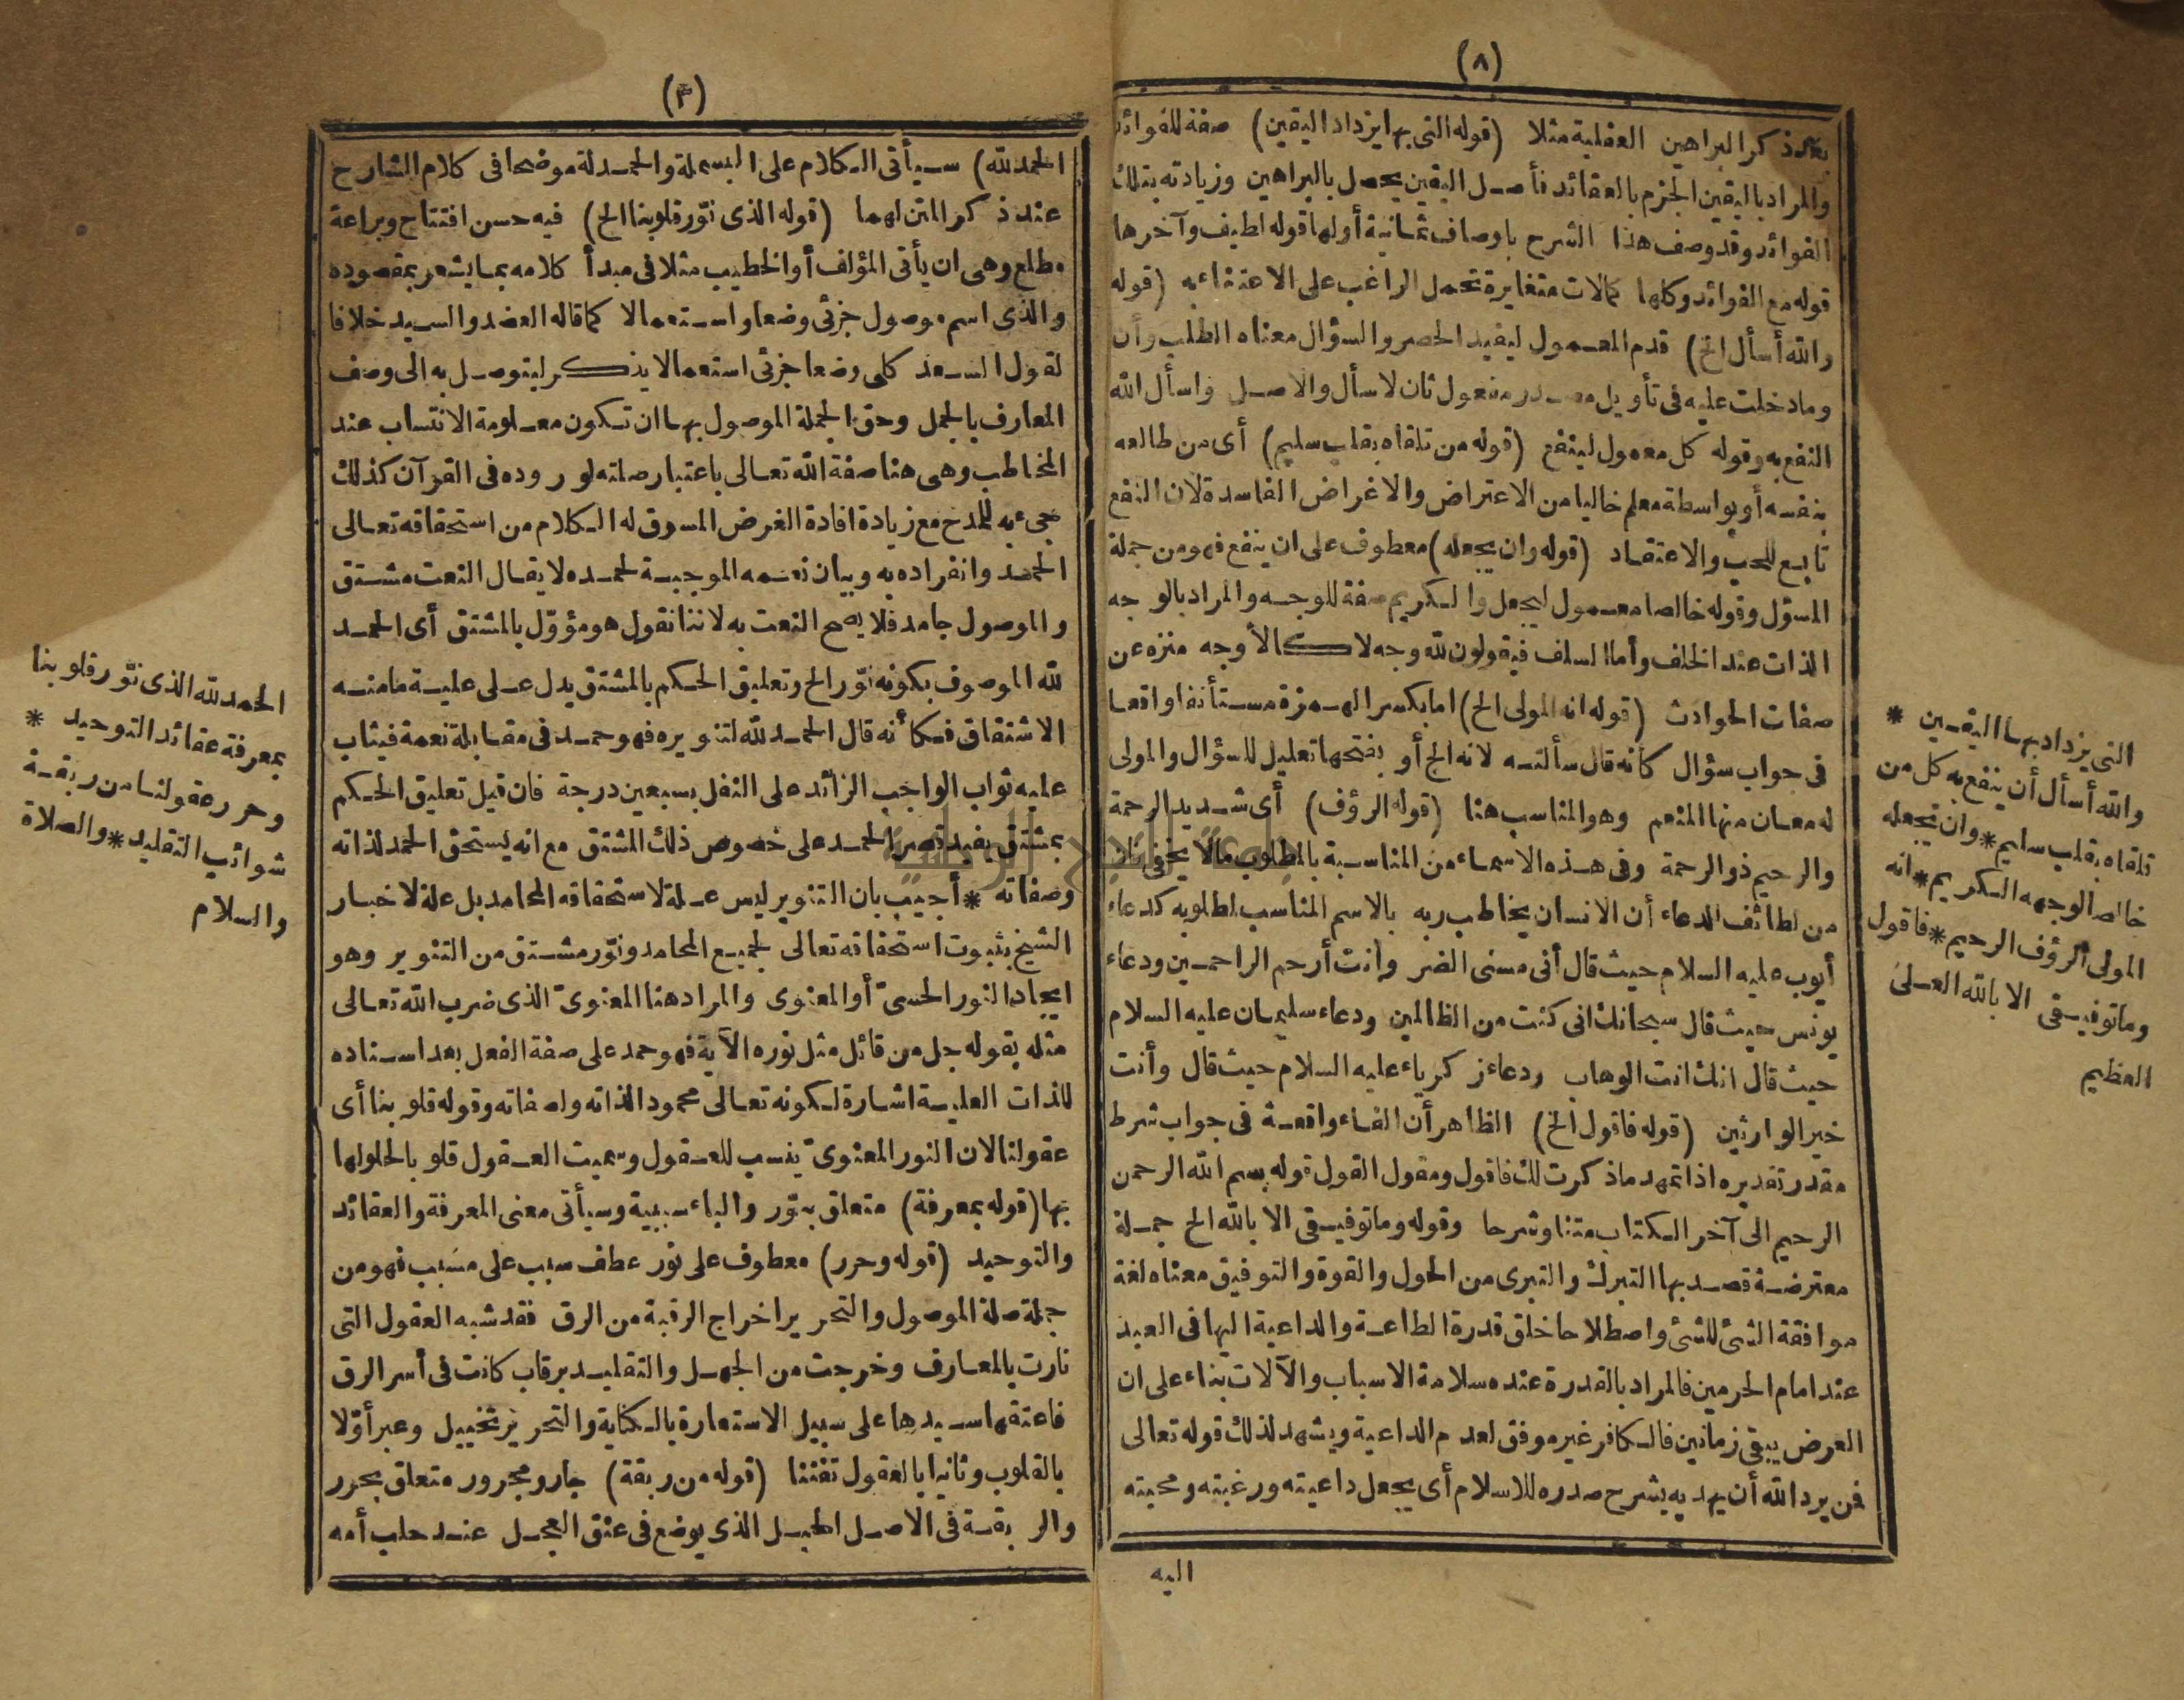 (٨)
بعد ذكر البراهين العقلية مثلا (قوله التى بها يزداد اليقين) صفة للفوائد
والمراد باليقين الجزم بالعقائد فأصل اليقين يحصل بالبراهين وزيادته بتلك
الفوائد وقد وصف هذا الشرح باوصاف ثمانية أولها قوله لطيف وآخرها
قوله مع الفوائد وكلها كمالات متغايرة تحمل الراغب على الاعتناء به (قوله
والله أسأل الخ) قدم المعمول ليفيد الحصر والسؤال معناه الطلب وأن
وما دخلت عليه فى تأويل مصدر مفعول ثان لاسأل والاصل واسأل الله
النفع به وقوله كل معمول لينفع (قوله من تلقاه بقلب سليم) أى من طالعه
بنفسه أو بواسطة معلم خاليا من الاعتراض والاغراض الفاسدة لان النفع
تابع للحب والاعتقاد (قوله وان يجعله) معطوف على ان ينفع فهو من جملة
المسؤل وقوله خالصا معمول ليجعل والكريم صفة للوجه والمراد بالوجه
الذات عند الخلف وأما السلف فيقولون لله وجه لا كالأوجه منزه عن
صفات الحوادث (قوله انه المولى الخ) اما بكسر الهمزة مستأنفا واقعا
فى جواب سؤال كأنه قال سألته لانه الخ أو بفتحها تعليل للسؤال والمولى
له معان منها المنعم وهو المناسب هنا (قوله الرؤف) أى شديد الرحمة
والرحيم ذو الرحمة وفى هذه الاسماء من المناسبة بالمطلوب مالا يخفى
من لطائف الدعاء أن الانسان يخاطب ربه بالاسم المناسب لمطلوبه كدعاء
أيوب عليه السلام حيث قال أنى مسنى الضر وأنت أرحم الراحمين ودعاء
يونس حيث قال سبحانك انى كنت من الظالمين ودعاء سليمان عليه السلام
حيث قال انك انت الوهاب ودعاء زكرياء عليه السلام حيث قال وأنت
خير الوارثين (قوله فاقول الخ) الظاهر أن الفاء واقعة فى جواب شرط
مقدر تقديره اذا تمهد ماذكرت لك فاقول ومقول القول قوله بسم الله الرحمن
الرحيم الى آخر الكتاب متنا وشرحا وقوله وما توفيقى الا بالله الخ جملة
معترضة قصد بها التبرك والتبرى من الحول والقوة والتوفيق معناه لغة
موافقة الشئ للشئ واصطلاحا خلق قدرة الطاعة والداعية اليها فى العبد
عند امام الحرمين فالمراد بالقدرة عنده سلامة الاسباب والآلات بناء على ان
العرض يبقى زمانين فالكافر غير موفق لعدم الداعية ويشهد لذلك قوله تعالى
فمن يرد الله أن يهديه يشرح صدره للاسلام أى يجعل داعيته ورغبته ومحبته
اليه
التى يزداد بها اليقين *
والله أسأل أن ينفع به كل من
تلقاه بقلب سليم * وان يجعله
خالصا لوجهه الكريم * انه
المولى الرؤف الرحيم * فاقول
وما توفيقى الا بالله العلى
العظيم
(٣)
الحمد لله) سيأتى الكلام على البسملة والحمدلة موضحا فى كلام الشارح
عند ذكر المتن لهما (قوله الذى نوّر قلوبنا الخ) فيه حسن افتتاح وبراعة
مطلع وهى ان يأتى المؤلف أو الخطيب مثلا فى مبدأ كلامه بما يشعر بمقصوده
والذى اسم موصول جزئى وضعا واستعمالا كما قاله العضد والسيد خلافا
لقول السعد كلى وضعا جزئى استعمالا يذكر ليتوصل به الى وصف
المعارف بالجمل وحق الجملة الموصول بها ان تكون معلومة الانتساب عند
المخاطب وهى هنا صفة الله تعالى باعتبار صلته لوروده فى القرآن كذلك
جىء به للمدح مع زيادة افادة الغرض المسوق له الكلام من استحقاقه تعالى
الحمد وانفراده به وبيان نعمه الموجبة لحمده لا يقال النعت مشتق
والموصول جامد فلا يصح النعت به لاننا نقول هو مؤوّل بالمشتق أى الحمد
لله الموصوف بكونه نوّر الخ وتعليق الحكم بالمشتق يدل على علية ما منه
الاشتقاق فكأنه قال الحمد لله لتنويره فهو حمد فى مقابلة نعمة فيثاب
عليه ثواب الواجب الزائد على النفل بسبعين درجة فان قيل تعليق الحكم
بمشتق يفيد قصر الحمد على خصوص ذلك المشتق مع انه يستحق الحمد لذاته
وصفاته * أجيب بان التنوير ليس علة لاستحقاقه المحامد بل علة لاخبار
الشيخ بثبوت استحقاقه تعالى لجميع المحامد ونوّر مشتق من التنوير وهو
ايجاد النور الحسىّ أو المعنوى والمراد هنا المعنوىّ الذى ضرب الله تعالى
مثله بقوله جل من قائل مثل نوره الآية فهو حمد على صفة الفعل بعد اسناده
للذات العلية اشارة لكونه تعالى محمودا لذاته ولصفاته وقوله قلوبنا أى
عقولنا لان النور المعنوىّ ينسب للعقول وسميت العقول قلوبا لحلولها
بها (قوله بمعرفة) متعلق بنوّر والباء سببية وسيأتى معنى المعرفة والعقائد
والتوحيد (قوله وحرر) معطوف على نور عطف سبب على مسبب فهو من
جملة صلة الموصول والتحرير اخراج الرقبة من الرق فقد شبه العقول التى
نارت بالمعارف وخرجت من الجهل والتقليد برقاب كانت فى أسر الرق
فاعتقها سيدها على سبيل الاستعارة بالكناية والتحرير تخييل وعبر أوّلا
بالقلوب وثانيا بالعقول تفننا (قوله من ربقة) جار ومجرور متعلق بحرر
والربقة فى الاصل الحبل الذى يوضع فى عنق العجل عند حلب أمه
الحمد لله الذى نوّر قلوبنا
بمعرفة عقائد التوحيد *
وحرر عقولنا من ربقة
شوائب التقليد * والصلاة
والسلام